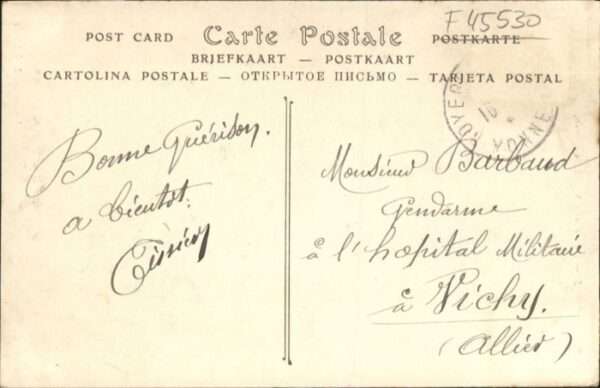 F 45530
POST CARD Carte Postale POSTKARTE
BRJEFKAART — POSTKAART
CARTOLINA POSTALE — ОТКРЫТОЕ ПИСЬМО — TARJETA POSTAL
YONNE
Bonne Guérison.
a bientôt.
Monsieur Barbaud
Gendarme
à l'hopital Militaire
à Vichy.
(Allier)